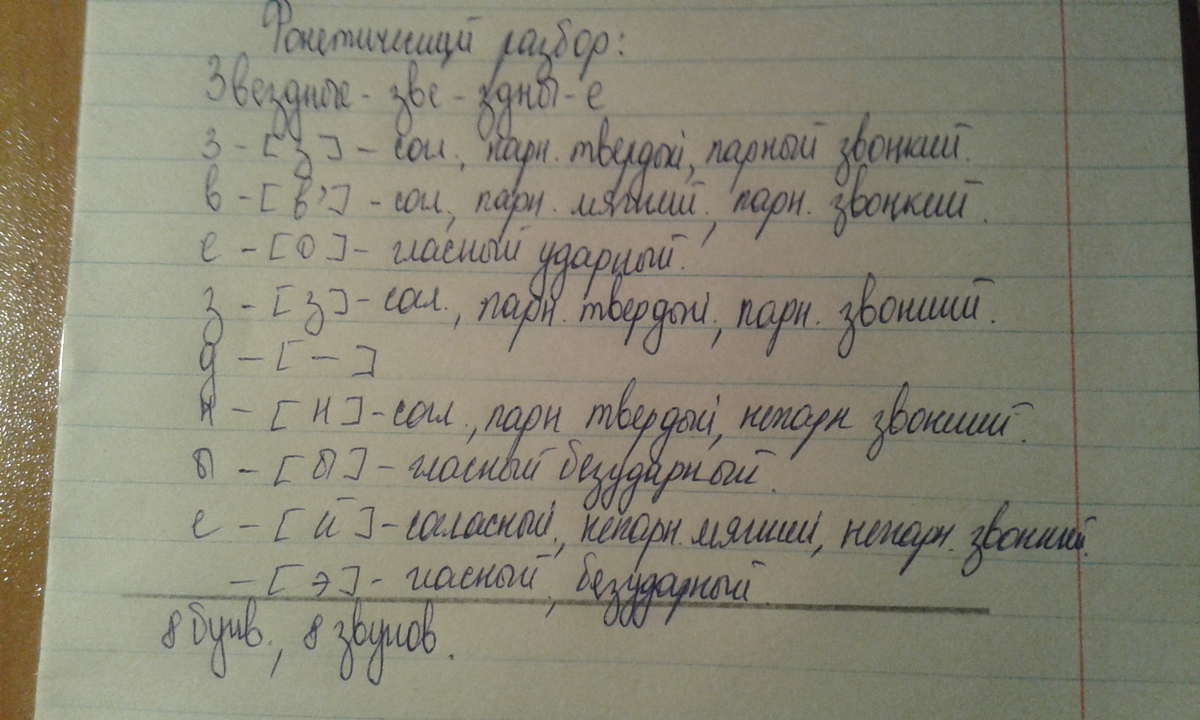 Фонетический разбор:
Звездные - зве - здны - е
з - [з] - согл., парн. твердый, парный звонкий.
в - [в'] - согл., парн. мягкий, парн. звонкий.
е - [о] - гласный ударный.
з - [з] - согл., парн. твердый, парн. звонкий.
д - [-]
н - [н] - согл., парн твердый, непарн звонкий.
ы - [ы] - гласный безударный.
е - [й] - согласный, непарн. мягкий, непарн. звонкий.
- [э] - гласный, безударный.
8 букв., 8 звуков.